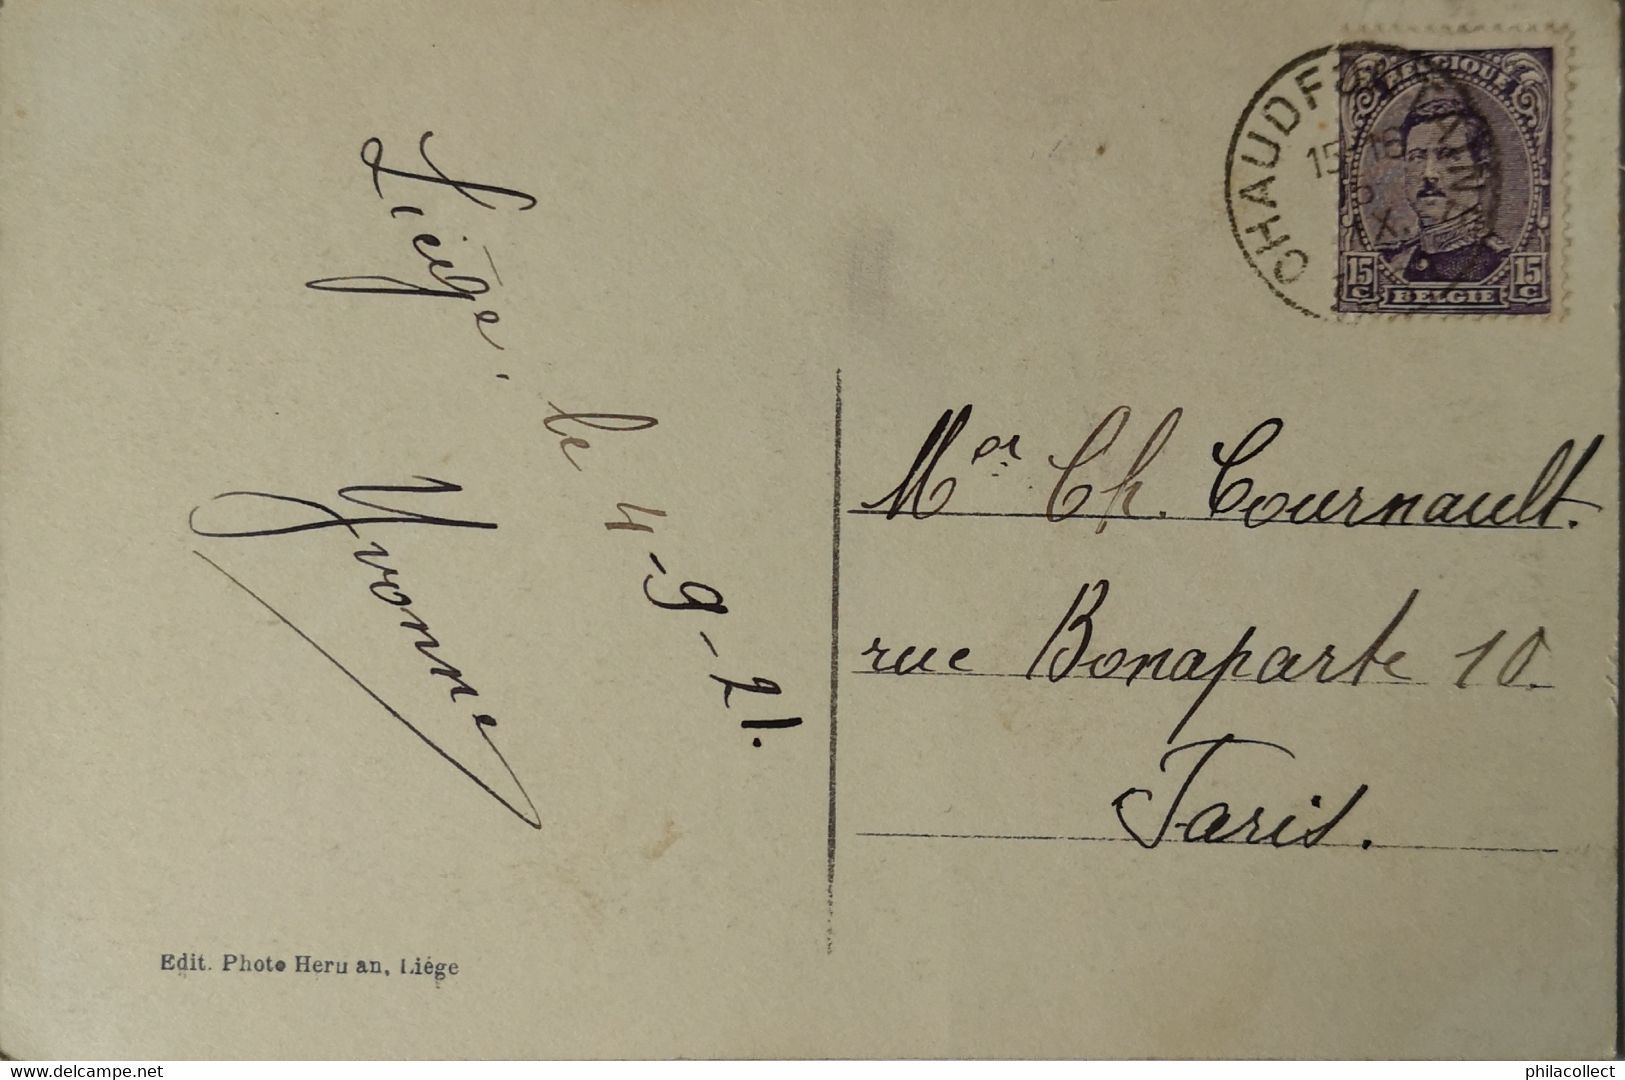 Liége, le 4-9-21.
Yvonne
Edit. Photo Heruan, Liége
CHAUDF
15-16
IX
BELGIQUE
15 C
15 C
BELGIE
Mer Ch. Cournault.
rue Bonaparte 10.
Paris.
www.delcampe.net
philacollect